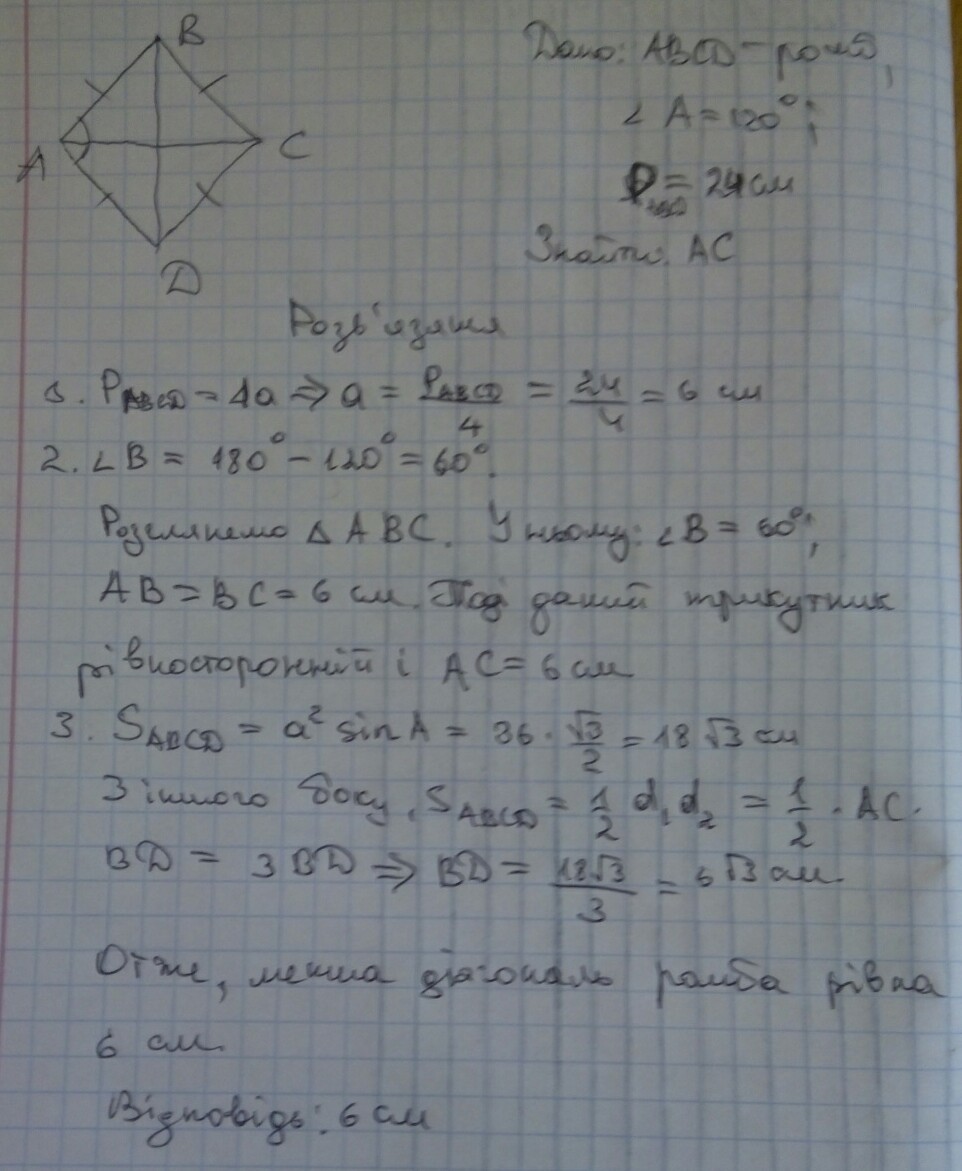 B
A
C
D
Дано: ABCD - ромб,
∠ A = 120°;
P = 24 см
Знайти: AC
Розв'язання
1. P_ABCD = 4a ⇒ a = P_ABCD/4 = 24/4 = 6 см
2. ∠B = 180° - 120° = 60°.
Розглянемо Δ ABC. У ньому: ∠B = 60°;
AB = BC = 6 см. Тоді даний трикутник
рівносторонній і AC = 6 см
3. S_ABCD = a² sin A = 36 · √3/2 = 18 √3 см
З іншого боку, S_ABCD = 1/2 d₁d₂ = 1/2 · AC ·
BD = 3 BD ⇒ BD = 18√3/3 = 6 √3 см.
Отже, менша діагональ ромба рівна
6 см.
Відповідь: 6 см